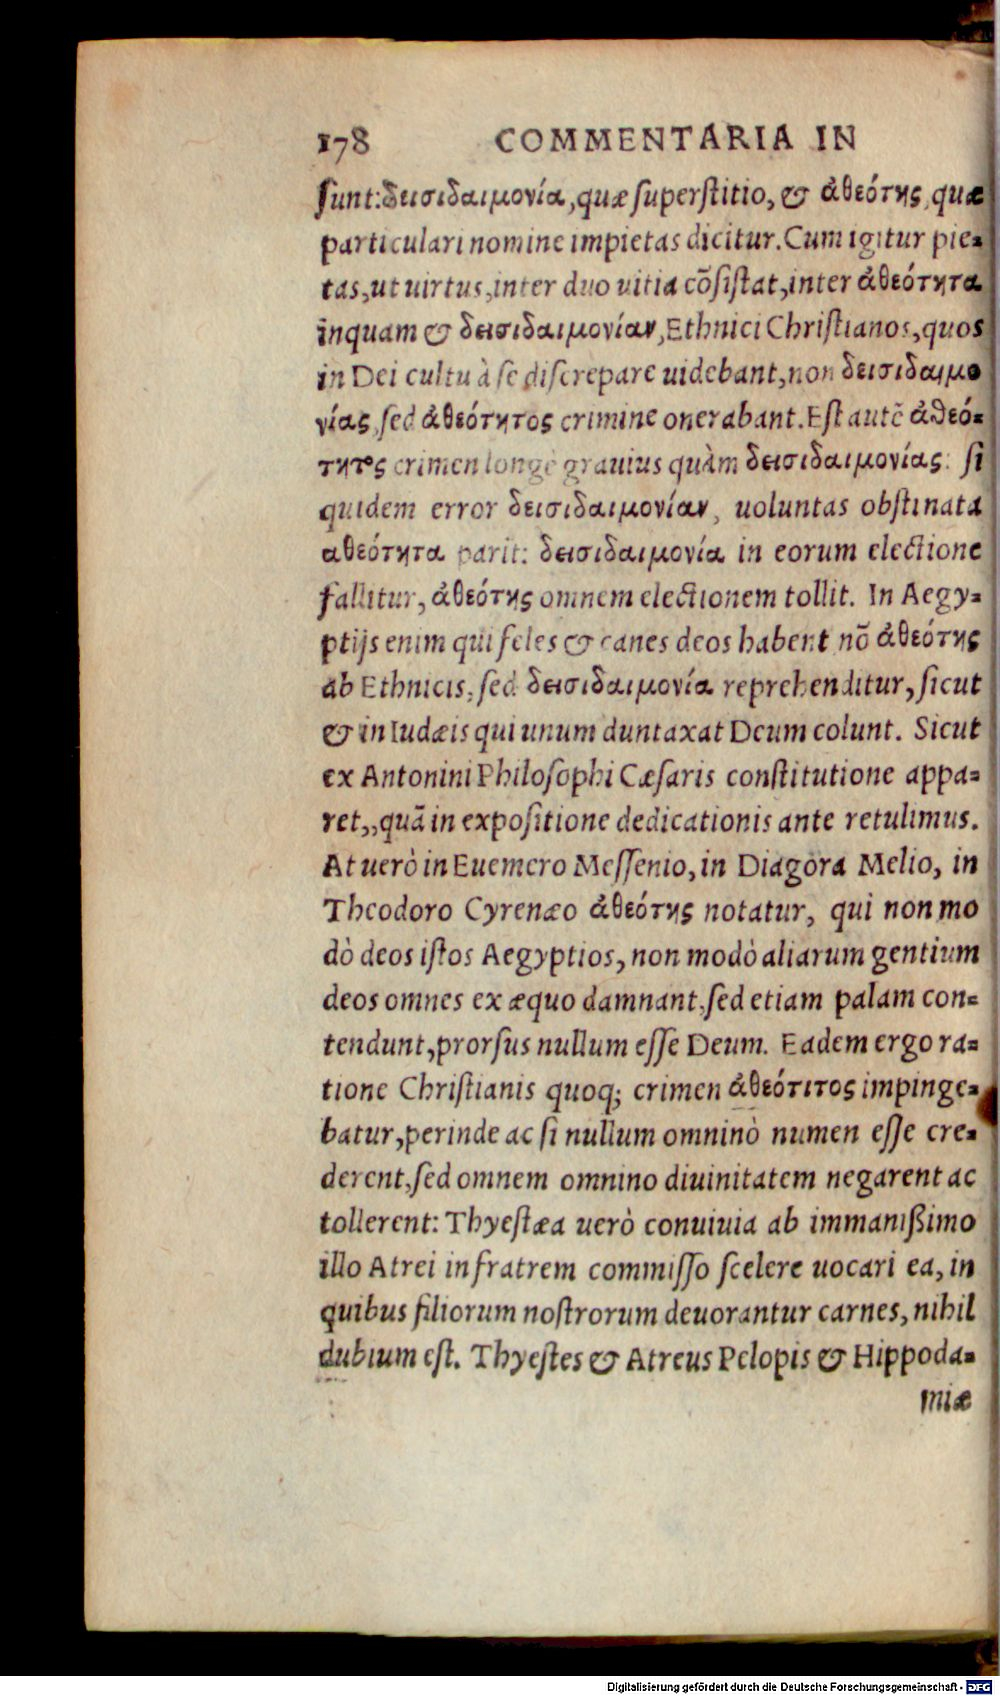 178 COMMENTARIA IN
sunt: δεισιδαιμονία, quæ superstitio, & ἀθεότης, quæ
particulari nomine impietas dicitur. Cum igitur pie-
tas, ut uirtus, inter duo uitia cōsistat, inter ἀθεότητα
inquam & δεισιδαιμονίαν, Ethnici Christianos, quos
in Dei cultu à se discrepare uidebant, non δεισιδαιμο
νίας, sed ἀθεότητος crimine onerabant. Est autē ἀθεό-
τητος crimen longè grauius quàm δεισιδαιμονίας: si
quidem error δεισιδαιμονίαν, uoluntas obstinata
αθεότητα parit: δεισιδαιμονία in eorum electione
fallitur, ἀθεότης omnem electionem tollit. In Aegy-
ptijs enim qui feles & canes deos habent nō ἀθεότης
ab Ethnicis, sed δεισιδαιμονία reprehenditur, sicut
& in Iudæis qui unum duntaxat Deum colunt. Sicut
ex Antonini Philosophi Cæsaris constitutione appa-
ret,, quā in expositione dedicationis ante retulimus.
At uerò in Euemero Messenio, in Diagora Melio, in
Theodoro Cyrenæo ἀθεότης notatur, qui non mo
dò deos istos Aegyptios, non modò aliarum gentium
deos omnes ex æquo damnant, sed etiam palam con-
tendunt, prorsus nullum esse Deum. Eadem ergo ra-
tione Christianis quoq; crimen ἀθεότιτος impinge-
batur, perinde ac si nullum omninò numen esse cre-
derent, sed omnem omnino diuinitatem negarent ac
tollerent: Thyestæa uerò conuiuia ab immanißimo
illo Atrei in fratrem commisso scelere uocari ea, in
quibus filiorum nostrorum deuorantur carnes, nihil
dubium est. Thyestes & Atreus Pelopis & Hippoda-
miæ
Digitalisierung gefördert durch die Deutsche Forschungsgemeinschaft - DFG